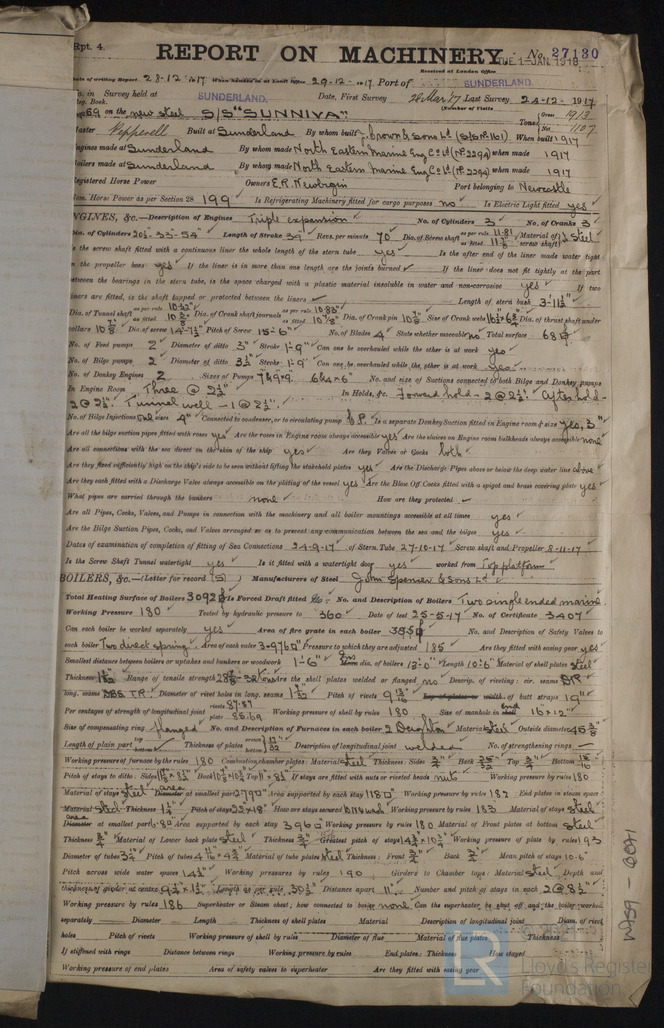 Rpt. 4.
REPORT ON MACHINERY. No. 27130
TUE. 1-JAN. 1918
Received at London Office
Date of writing Report 28-12-1917 When handed in at Local Office 29-12-1917 Port of SUNDERLAND.
No. in Survey held at SUNDERLAND. Date, First Survey 26 Mar '17 Last Survey 24-12-1917
Reg. Book. (Number of Visits
69 on the new steel S/S "SUNNIVA" Tons Gross 1913 Net 1107
Master Pepperell Built at Sunderland By whom built J. Brown & Sons Ld (S/S No. 1101) When built 1917
Engines made at Sunderland By whom made North Eastern Marine Eng. Co. Ld (No. 2294) when made 1917
Boilers made at Sunderland By whom made North Eastern Marine Eng. Co. Ld (No. 2294) when made 1917
Registered Horse Power Owners E.R. Newbigin Port belonging to Newcastle
Nom. Horse Power as per Section 28 199 Is Refrigerating Machinery fitted for cargo purposes no Is Electric Light fitted yes
ENGINES, &c.—Description of Engines Triple expansion No. of Cylinders 3 No. of Cranks 3
Dia. of Cylinders 20½-33-54 Length of Stroke 39 Revs. per minute 70 Dia. of Screw shaft as per rule 11.81 as fitted Material of screw shaft Steel
Is the screw shaft fitted with a continuous liner the whole length of the stern tube yes Is the after end of the liner made water tight
in the propeller boss yes If the liner is in more than one length are the joints burned If the liner does not fit tightly at the part
between the bearings in the stern tube, is the space charged with a plastic material insoluble in water and non-corrosive yes If two
liners are fitted, is the shaft lapped or protected between the liners Length of stern bush 3-11½"
Dia. of Tunnel shaft as per rule as fitted Dia. of Crank shaft journals as per rule 10.83" as fitted 10⅞" Dia. of Crank pin Size of Crank webs Dia. of thrust shaft under
collars 10⅞ Dia. of screw 14-7½ Pitch of Screw 15-6" No. of Blades 4 State whether moveable no Total surface 68
No. of Feed pumps 2 Diameter of ditto 3" Stroke 1-9" Can one be overhauled while the other is at work yes
No. of Bilge pumps 2 Diameter of ditto 3½ Stroke 1-9" Can one be overhauled while the other is at work yes
No. of Donkey Engines 2 Sizes of Pumps 7&9×9. 6&4×6" No. and size of Suctions connected to both Bilge and Donkey pumps
In Engine Room Three @ 2½" In Holds, &c. Forward hold - 2 @ 2½". After hold -
2 @ 2½". Tunnel well - 1 @ 2½".
No. of Bilge Injections one sizes 4" Connected to condenser, or to circulating pump C.P. Is a separate Donkey Suction fitted in Engine room & size yes, 3"
Are all the bilge suction pipes fitted with roses yes Are the roses in Engine room always accessible yes Are the sluices on Engine room bulkheads always accessible none
Are all connections with the sea direct on the skin of the ship yes Are they Valves or Cocks both
Are they fixed sufficiently high on the ship's side to be seen without lifting the stokehold plates yes Are the Discharge Pipes above or below the deep water line above
Are they each fitted with a Discharge Valve always accessible on the plating of the vessel yes Are the Blow Off Cocks fitted with a spigot and brass covering plate yes
What pipes are carried through the bunkers none How are they protected
Are all Pipes, Cocks, Valves, and Pumps in connection with the machinery and all boiler mountings accessible at all times yes
Are the Bilge Suction Pipes, Cocks, and Valves arranged so as to prevent any communication between the sea and the bilges yes
Dates of examination of completion of fitting of Sea Connections 24-9-17 of Stern Tube 27-10-17 Screw shaft and Propeller 8-11-17
Is the Screw Shaft Tunnel watertight yes Is it fitted with a watertight door yes worked from Top platform
BOILERS, &c.—(Letter for record (S)) Manufacturers of Steel John Spencer & Sons Ld
Total Heating Surface of Boilers 3092 Is Forced Draft fitted No. and Description of Boilers Two single ended marine
Working Pressure 180 Tested by hydraulic pressure to 360 Date of test 25-5-17 No. of Certificate 3407
Can each boiler be worked separately yes Area of fire grate in each boiler No. and Description of Safety Valves to
each boiler Two direct spring Area of each valve 3.976 Pressure to which they are adjusted 185 Are they fitted with easing gear yes
Smallest distance between boilers or uptakes and bunkers or woodwork 1-6" dia. of boilers 13-9" Length 10-6" Material of shell plates steel
Thickness Range of tensile strength Are the shell plates welded or flanged no Descrip. of riveting: cir. seams D.R.
long. seams D.B.S. T.R. Diameter of rivet holes in long. seams Pitch of rivets Lap of plates or width of butt straps 19"
Per centages of strength of longitudinal joint rivets 87.87 plate 85.69 Working pressure of shell by rules 180 Size of manhole in end 16×12"
Size of compensating ring flanged No. and Description of Furnaces in each boiler 2 Deighton Material steel Outside diameter
Length of plain part top bottom Thickness of plates crown bottom Description of longitudinal joint welded No. of strengthening rings
Working pressure of furnace by the rules 180 Combustion chamber plates: Material steel Thickness: Sides Back Top Bottom
Pitch of stays to ditto: Sides Back Top If stays are fitted with nuts or riveted heads nuts Working pressure by rules 180
Material of stays steel area at smallest part Area supported by each stay Working pressure by rules 182 End plates in steam space:
Material steel Thickness Pitch of stays 22×18" How are stays secured Working pressure by rules 183 Material of stays steel
area at smallest part Area supported by each stay 396 Working pressure by rules 180 Material of Front plates at bottom steel
Thickness Material of Lower back plate steel Thickness Greatest pitch of stays Working pressure of plate by rules 193
Diameter of tubes 3¼" Pitch of tubes Material of tube plates steel Thickness: Front Back Mean pitch of stays
Pitch across wide water spaces 14½" Working pressures by rules 190 Girders to Chamber tops: Material steel Depth and
thickness of girder at centre Length as per rule Distance apart 11" Number and pitch of stays in each 2 @ 8½"
Working pressure by rules 186 Superheater or Steam chest; how connected to boiler none Can the superheater be shut off and the boiler worked
separately Diameter Length Thickness of shell plates Material Description of longitudinal joint Diam. of rivet
holes Pitch of rivets Working pressure of shell by rules Diameter of flue Material of flue plates Thickness
If stiffened with rings Distance between rings Working pressure by rules End plates: Thickness How stayed
Working pressure of end plates Area of safety valves to superheater Are they fitted with easing gear
W459-0041
LR
Lloyd's Register
Foundation